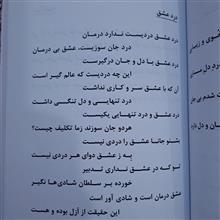 درد عشق
درد عشق دردیست ندارد درمان
درد جان سوزیست، عشق بی درمان
درد عشق با دل و جان درگیرست
این چه دردیست که عالم گیر است
آن که با عشق سر و کاری نداشت
درد تنهایی و دل تنگی داشت
درد عشق و درد تنهایی یکیست
هردو جان سوزند زما تکلیف چیست؟
بشنو جانا عشق را دردی نیست
به ز عشق دوای هر دردی نیست
تو که در عشق نداری تدبیر
خورده بر سلطان شادی‌ها نگیر
عشق درمان است و شادی آور است
این حقیقت از ازل بوده و هست